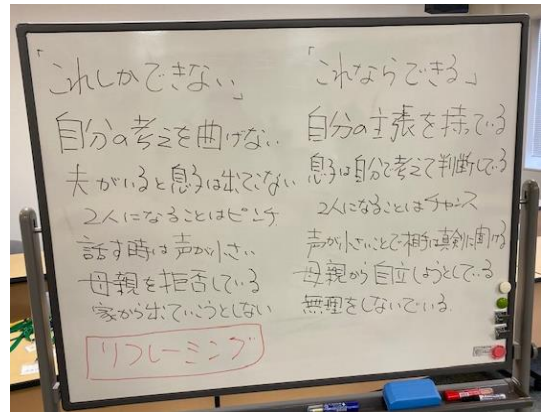 「これしかできない」
自分の考えを曲げない
夫がいると息子は出てこない
2人になることはピンチ
話す時は声が小さい
母親を拒否している
家から出ていこうとしない
リフレーミング
「これならできる」
自分の主張を持っている
息子は自分で考えて判断している
2人になることはチャンス
声が小さいことで相手は真剣に聞ける
母親から自立しようとしている
無理をしないでいる